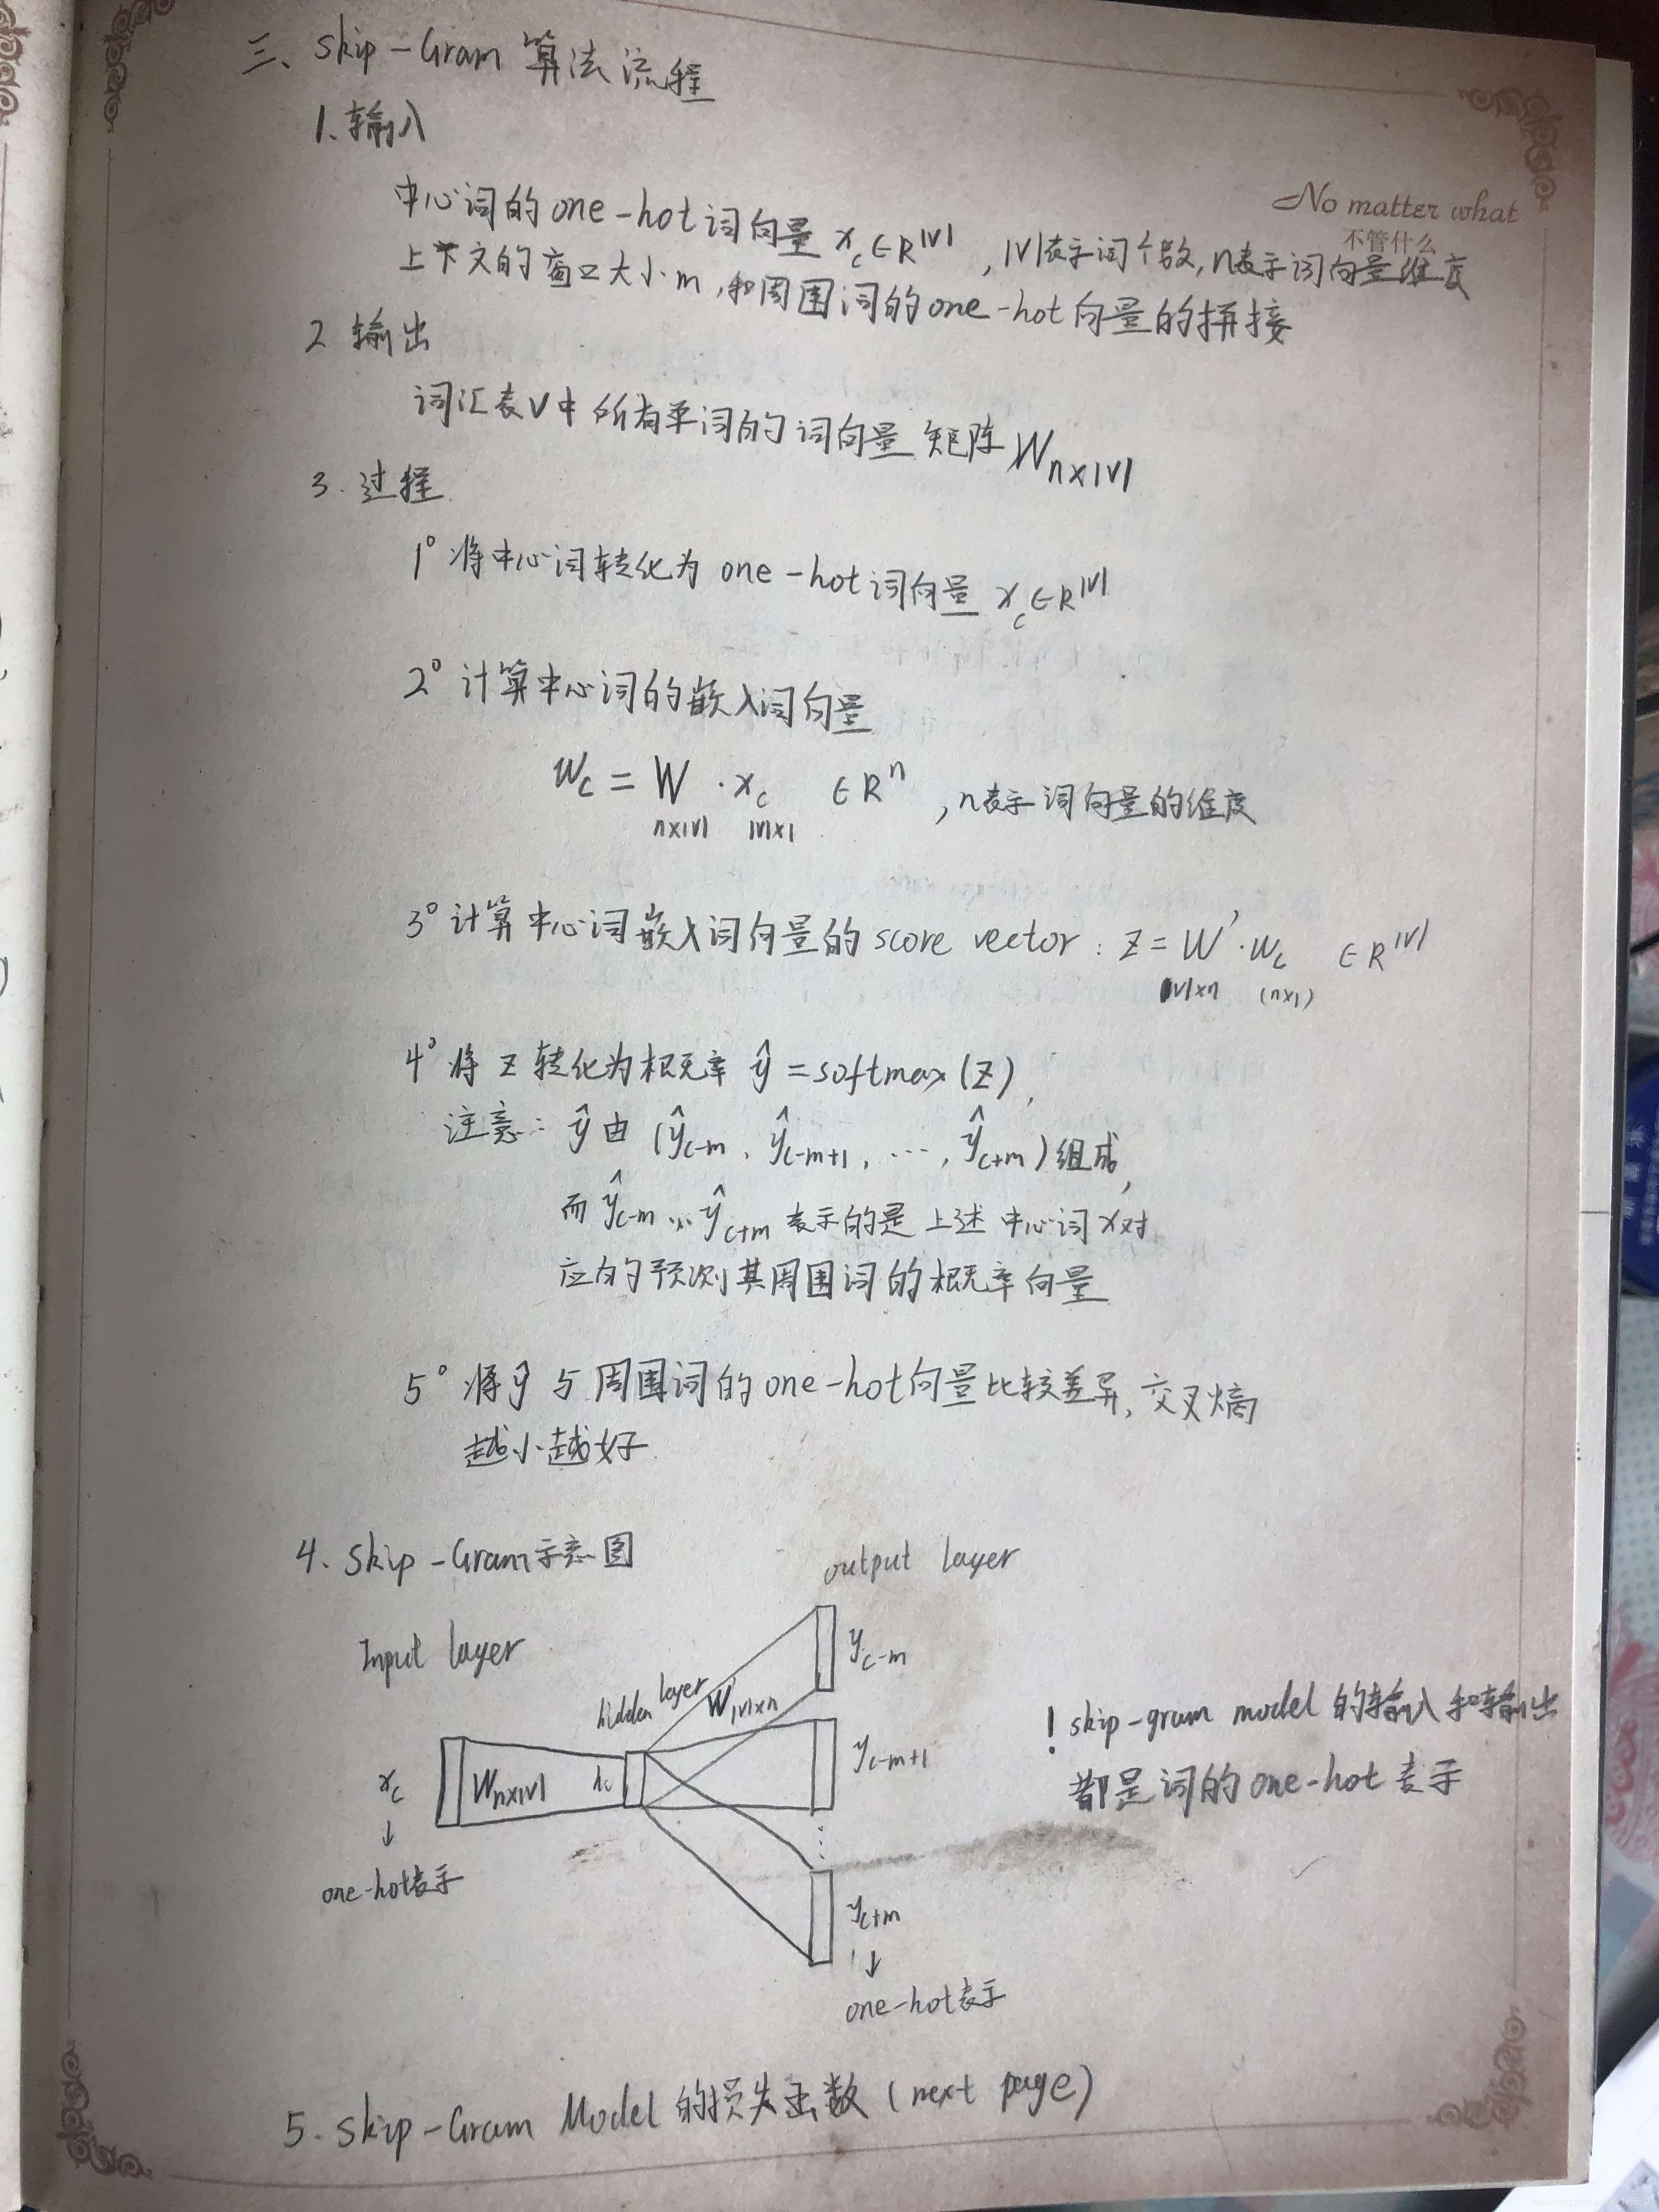 三、Skip-Gram 算法流程
1、输入
No matter what
不管什么
中心词的one-hot词向量 x_c∈R^|V| , |V|表示词个数, n表示词向量维度
上下文的窗口大小m, 和周围词的one-hot向量的拼接
2 输出
词汇表V中所有单词的词向量矩阵 W_n×|V|
3. 过程
1° 将中心词转化为 one-hot词向量 x_c∈R^|V|
2° 计算中心词的嵌入词向量
w_c = W · x_c ∈R^n , n表示词向量的维度
n×|V| |V|×1
3° 计算中心词嵌入词向量的 score vector : z = W' · w_c ∈R^|V|
|V|×n (n×1)
4° 将 z 转化为概率 ŷ = softmax(z),
注意: ŷ由 (ŷ_c-m, ŷ_c-m+1, ..., ŷ_c+m)组成,
而 ŷ_c-m ... ŷ_c+m 表示的是上述中心词x对
应的预测其周围词的概率向量
5° 将ŷ与周围词的one-hot向量比较差异, 交叉熵
越小越好
4. Skip-Gram示意图
output layer
Input layer
y_c-m
hidden layer
W'_|V|×n
! skip-gram model 的输入和输出
都是词的one-hot表示
y_c-m+1
x_c
W_n×|V|
↓
one-hot表示
y_c+m
↓
one-hot表示
5. Skip-Gram Model 的损失函数 (next page)